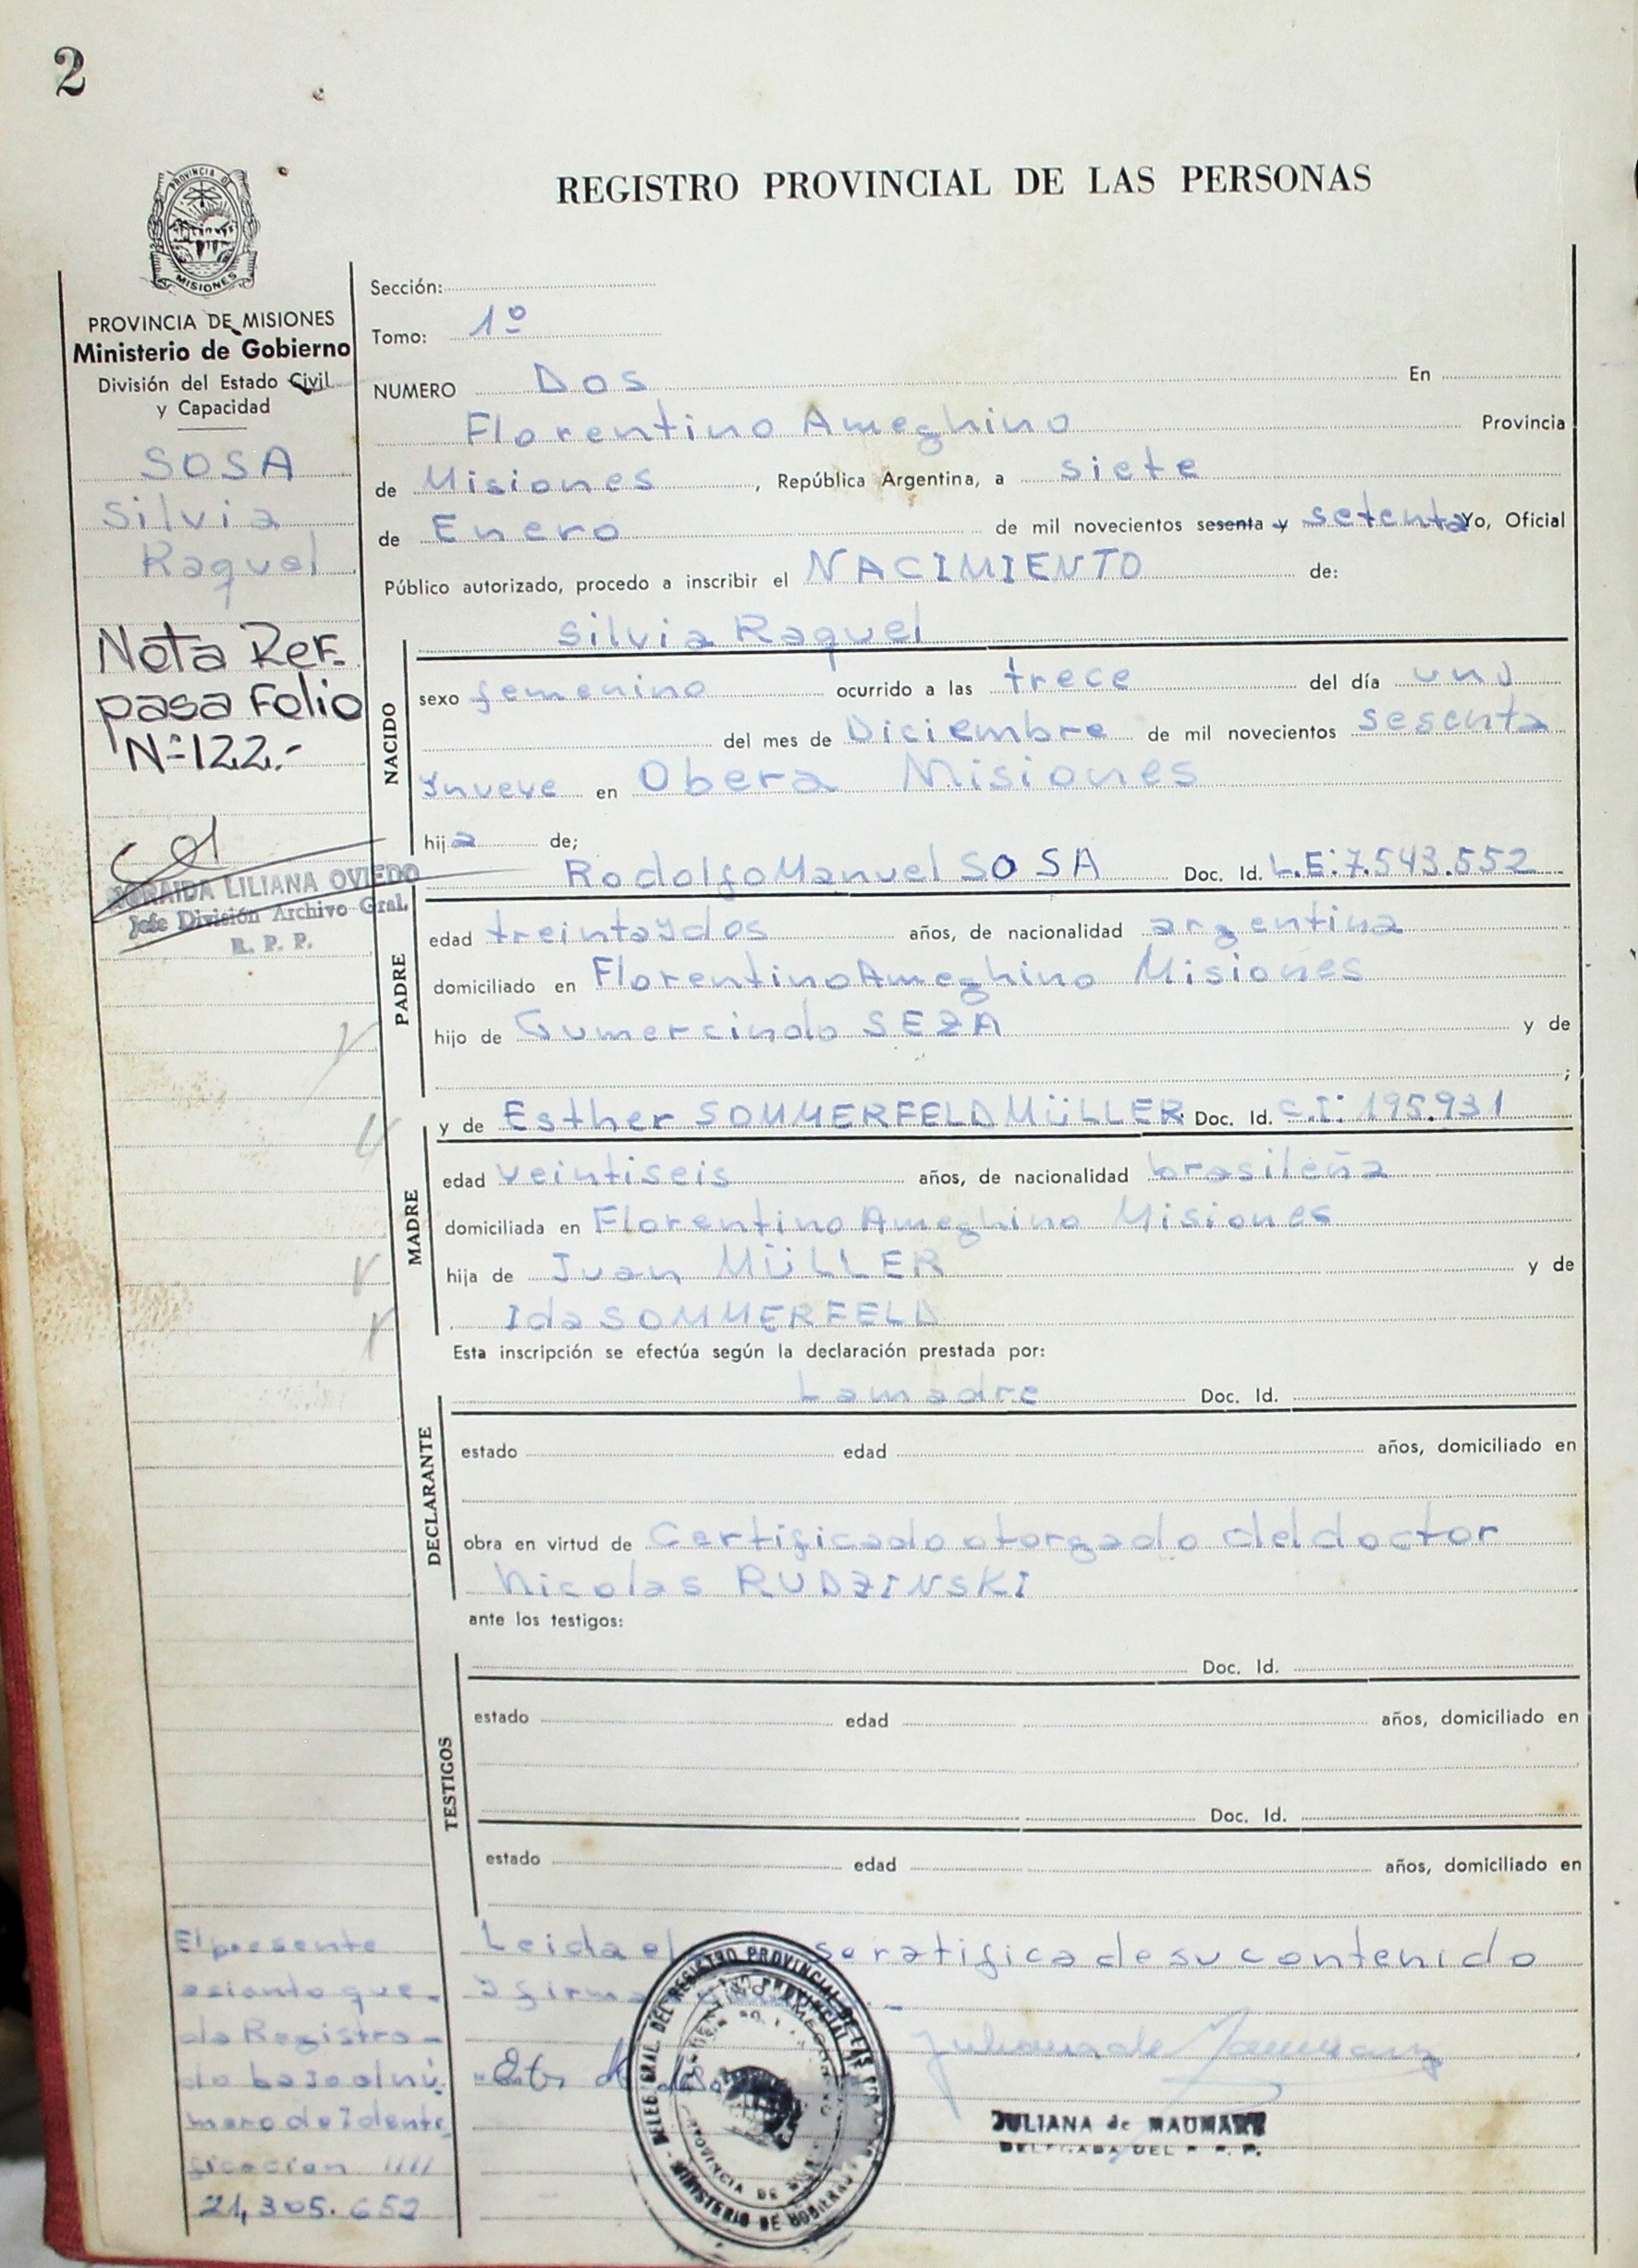 2
REGISTRO PROVINCIAL DE LAS PERSONAS
PROVINCIA DE
MISIONES
PROVINCIA DE MISIONES
Ministerio de Gobierno
División del Estado Civil
y Capacidad
SOSA
Silvia
Raquel
Nota Ref.
pasa Folio
Nº122.-
ZORAIDA LILIANA OVIEDO
Jefe División Archivo Gral.
R. P. P.
Sección:
Tomo: 1º
NUMERO Dos En
Florentino Ameghino Provincia
de Misiones, República Argentina, a siete
de Enero de mil novecientos sesenta y setenta Yo, Oficial
Público autorizado, procedo a inscribir el NACIMIENTO de:
Silvia Raquel
NACIDO
sexo femenino ocurrido a las trece del día uno
del mes de Diciembre de mil novecientos sesenta
ynueve en Obera Misiones
hija de;
Rodolfo Manuel SOSA Doc. Id. L.E: 7.543.552
PADRE
edad treinta y dos años, de nacionalidad argentina
domiciliado en Florentino Ameghino Misiones
hijo de Gumercindo y de
;
y de Esther SOMMERFELD MÜLLER Doc. Id. C.I: 195.931
MADRE
edad veintiseis años, de nacionalidad brasileña
domiciliada en Florentino Ameghino Misiones
hija de Juan MÜLLER y de
Ida SOMMERFELD
Esta inscripción se efectúa según la declaración prestada por:
La madre Doc. Id.
DECLARANTE
estado edad años, domiciliado en
obra en virtud de Certificado otorgado del doctor
Nicolas RUDZINSKI
ante los testigos:
Doc. Id.
TESTIGOS
estado edad años, domiciliado en
Doc. Id.
estado edad años, domiciliado en
Leida el se ratifica de su contenido
y firma
El presente
asiento que-
da Registra-
do bajo el nú-
mero de Identi-
ficacion ////
21,305.652
DELEG. GRAL. DEL REGISTRO PROVINCIAL DE LAS
MINISTERIO DE GOBIERNO
PROVINCIA DE
Juliana de
JULIANA de
DELEGADA DEL R. P. P.